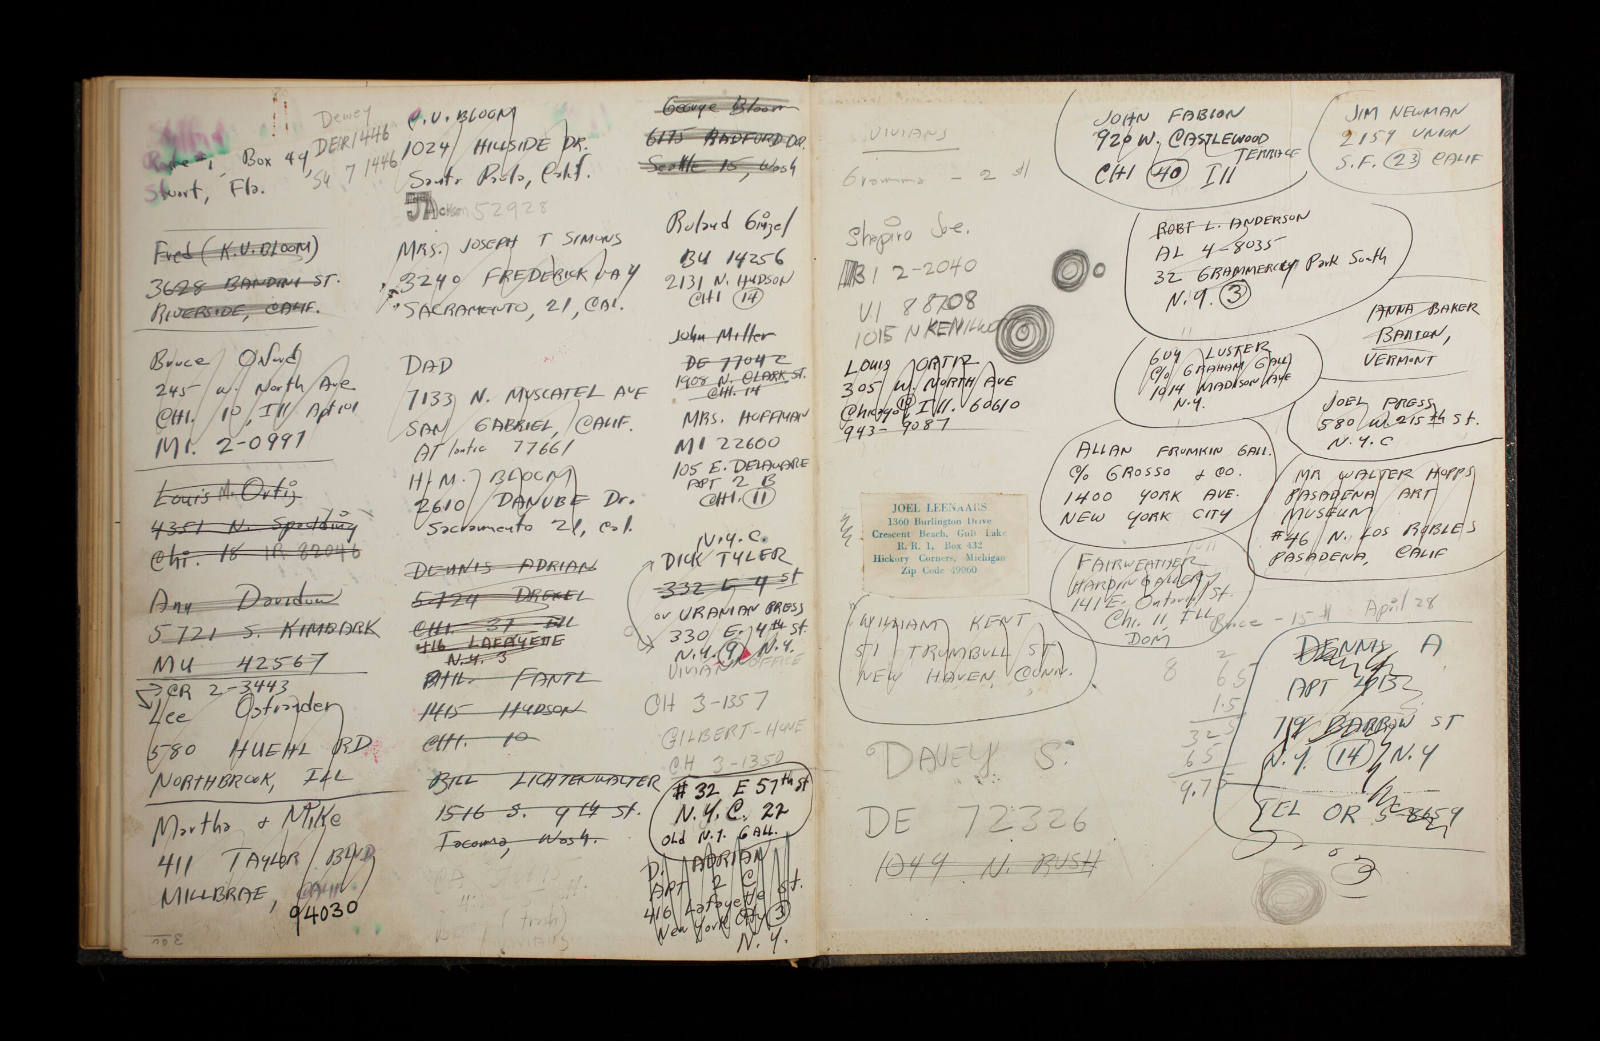 Dewey
DE 7 1446
Su 7 1446
Box 49,
Stuart, Fla.
Fred (K.U. BLOOM)
3628 BANDINI ST.
RIVERSIDE, CALIF.
Bruce
245 W. North Ave
CHI. 10, Ill Apt 101
MI. 2-0997
Louis M. Ortiz
4351 N. Spaulding
Chi. 18
Any Davidow
5721 S. KIMBARK
MU 42567
CR 2-3443
Lee Ostrander
580 HUEHL RD
NORTHBROOK, ILL
Martha & Mike
411 TAYLOR BLVD
MILLBRAE, CALIF
94030
C.U. BLOOM
1024 HILLSIDE DR.
Santa Paula, Calif.
JAckson 52928
MRS. JOSEPH T SIMONS
3240 FREDERICK WAY
SACRAMENTO, 21, CAL.
DAD
7133 N. MUSCATEL AVE
SAN GABRIEL, CALIF.
ATlantic 77661
H.M. BLOOM
2610 DANUBE Dr.
Sacramento 21, Cal.
DENNIS ADRIAN
5724 DREXEL
CHI. 37 Ill
416 LAFAYETTE
N.Y. 3
PHIL FANTL
1415 HUDSON
CHI. 10
BILL LICHTENWALTER
1516 S. 9th St.
Tacoma, Wash.
George Bloom
6175 RADFORD DR.
Seattle 15, Wash
Roland Ginzel
BU 14256
2131 N. HUDSON
CHI 14
John Miller
DE 77042
1908 N. CLARK ST.
CHI. 14
MRS. HOFFMAN
MI 22600
105 E. DELAWARE
APT 2 B
CHI. 11
N.Y.C.
DICK TYLER
332 E 4 st
or URANIAN PRESS
330 E. 4th St.
N.Y. 9, N.Y.
VIVIAN OFFICE
CH 3-1357
GILBERT-HUNE
CH 3-1350
#32 E 57th St
N.Y.C. 22
OLD N.Y. GALL.
D. ADRIAN
APT 2 C
416 Lafayette St.
New York City 3
N.Y.
VIVIANS
Gramma - 2 #
Shapiro Joe.
BI 2-2040
VI 88708
1015 N KENILWO
LOUIS ORTIZ
305 W. NORTH AVE
Chicago 10, Ill. 60610
943-9087
JOEL LEENAARS
1360 Burlington Drive
Crescent Beach, Gull Lake
R. R. 1, Box 432
Hickory Corners, Michigan
Zip Code 49060
WILLIAM KENT
51 TRUMBULL ST
NEW HAVEN, CONN.
DAVEY S.
DE 72326
1049 N. RUSH
JOHN FABION
920 W. CASTLEWOOD
TERRACE
CHI 40 Ill
ROBT L. ANDERSON
AL 4-8035
32 GRAMMERCY Park South
N.Y. 3
604 LUSTER
C/O GRAHAM GALL
1014 MADISON AVE
N.Y.
ALLAN FRUMKIN GALL.
C/O GROSSO & CO.
1400 YORK AVE.
NEW YORK CITY
FAIRWEATHER
HARDIN GALLERY
141 E. Ontario St.
Chi. 11, ILL
DOM
JIM NEWMAN
2159 UNION
S.F. 23 CALIF
ANNA BAKER
BARTON,
VERMONT
JOEL PRESS
580 W. 215th St.
N.Y.C
MR WALTER HOPPS
PASADENA ART
MUSEUM
#46 N. LOS ROBLES
PASADENA, CALIF
Bruce - 15 # April 28
8
2
65
1.5
325
65
9.75
DENNIS A
APT
719 BARROW ST
N.Y. 14, N.Y
TEL OR 5-8659